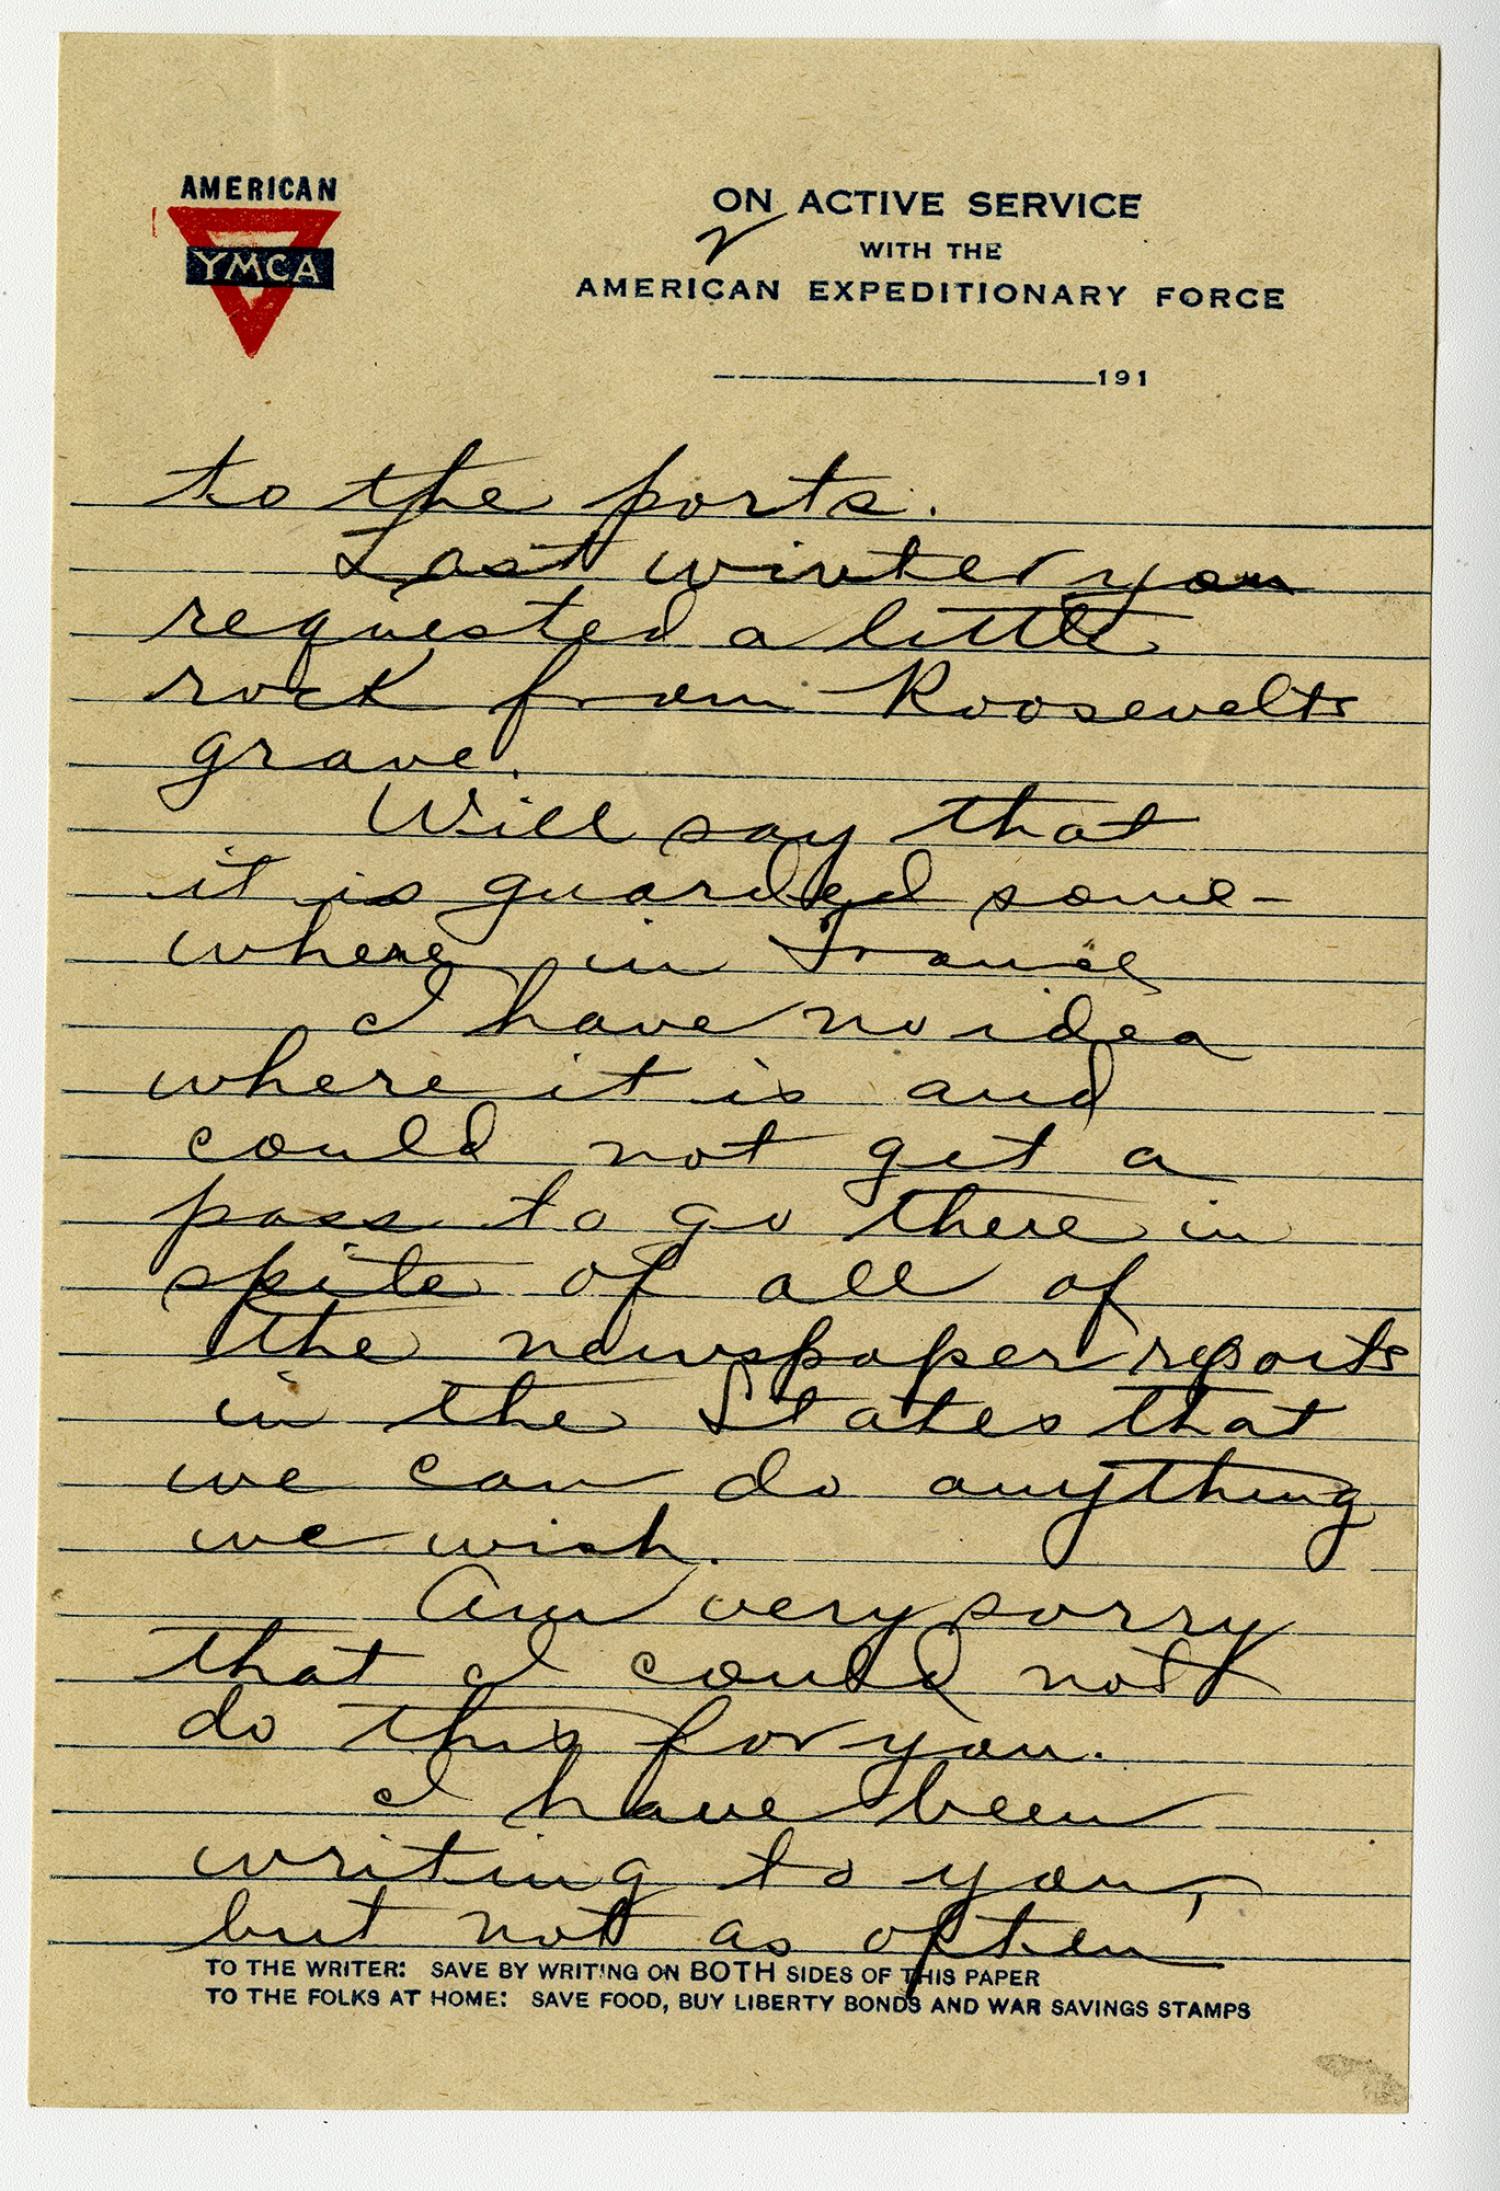 AMERICAN
YMCA
ON ACTIVE SERVICE
WITH THE
AMERICAN EXPEDITIONARY FORCE
191
to the ports.
Last winter you
requested a little
rock from Roosevelts
grave.
Will say that
it is guarded some-
where in France
I have no idea
where it is and
could not get a
pass to go there in
spite of all of
the newspaper reports
in the States that
we can do anything
we wish.
Am very sorry
that I could not
do this for you.
I have been
writing to you,
but not as often
TO THE WRITER: SAVE BY WRITING ON BOTH SIDES OF THIS PAPER
TO THE FOLKS AT HOME: SAVE FOOD, BUY LIBERTY BONDS AND WAR SAVINGS STAMPS